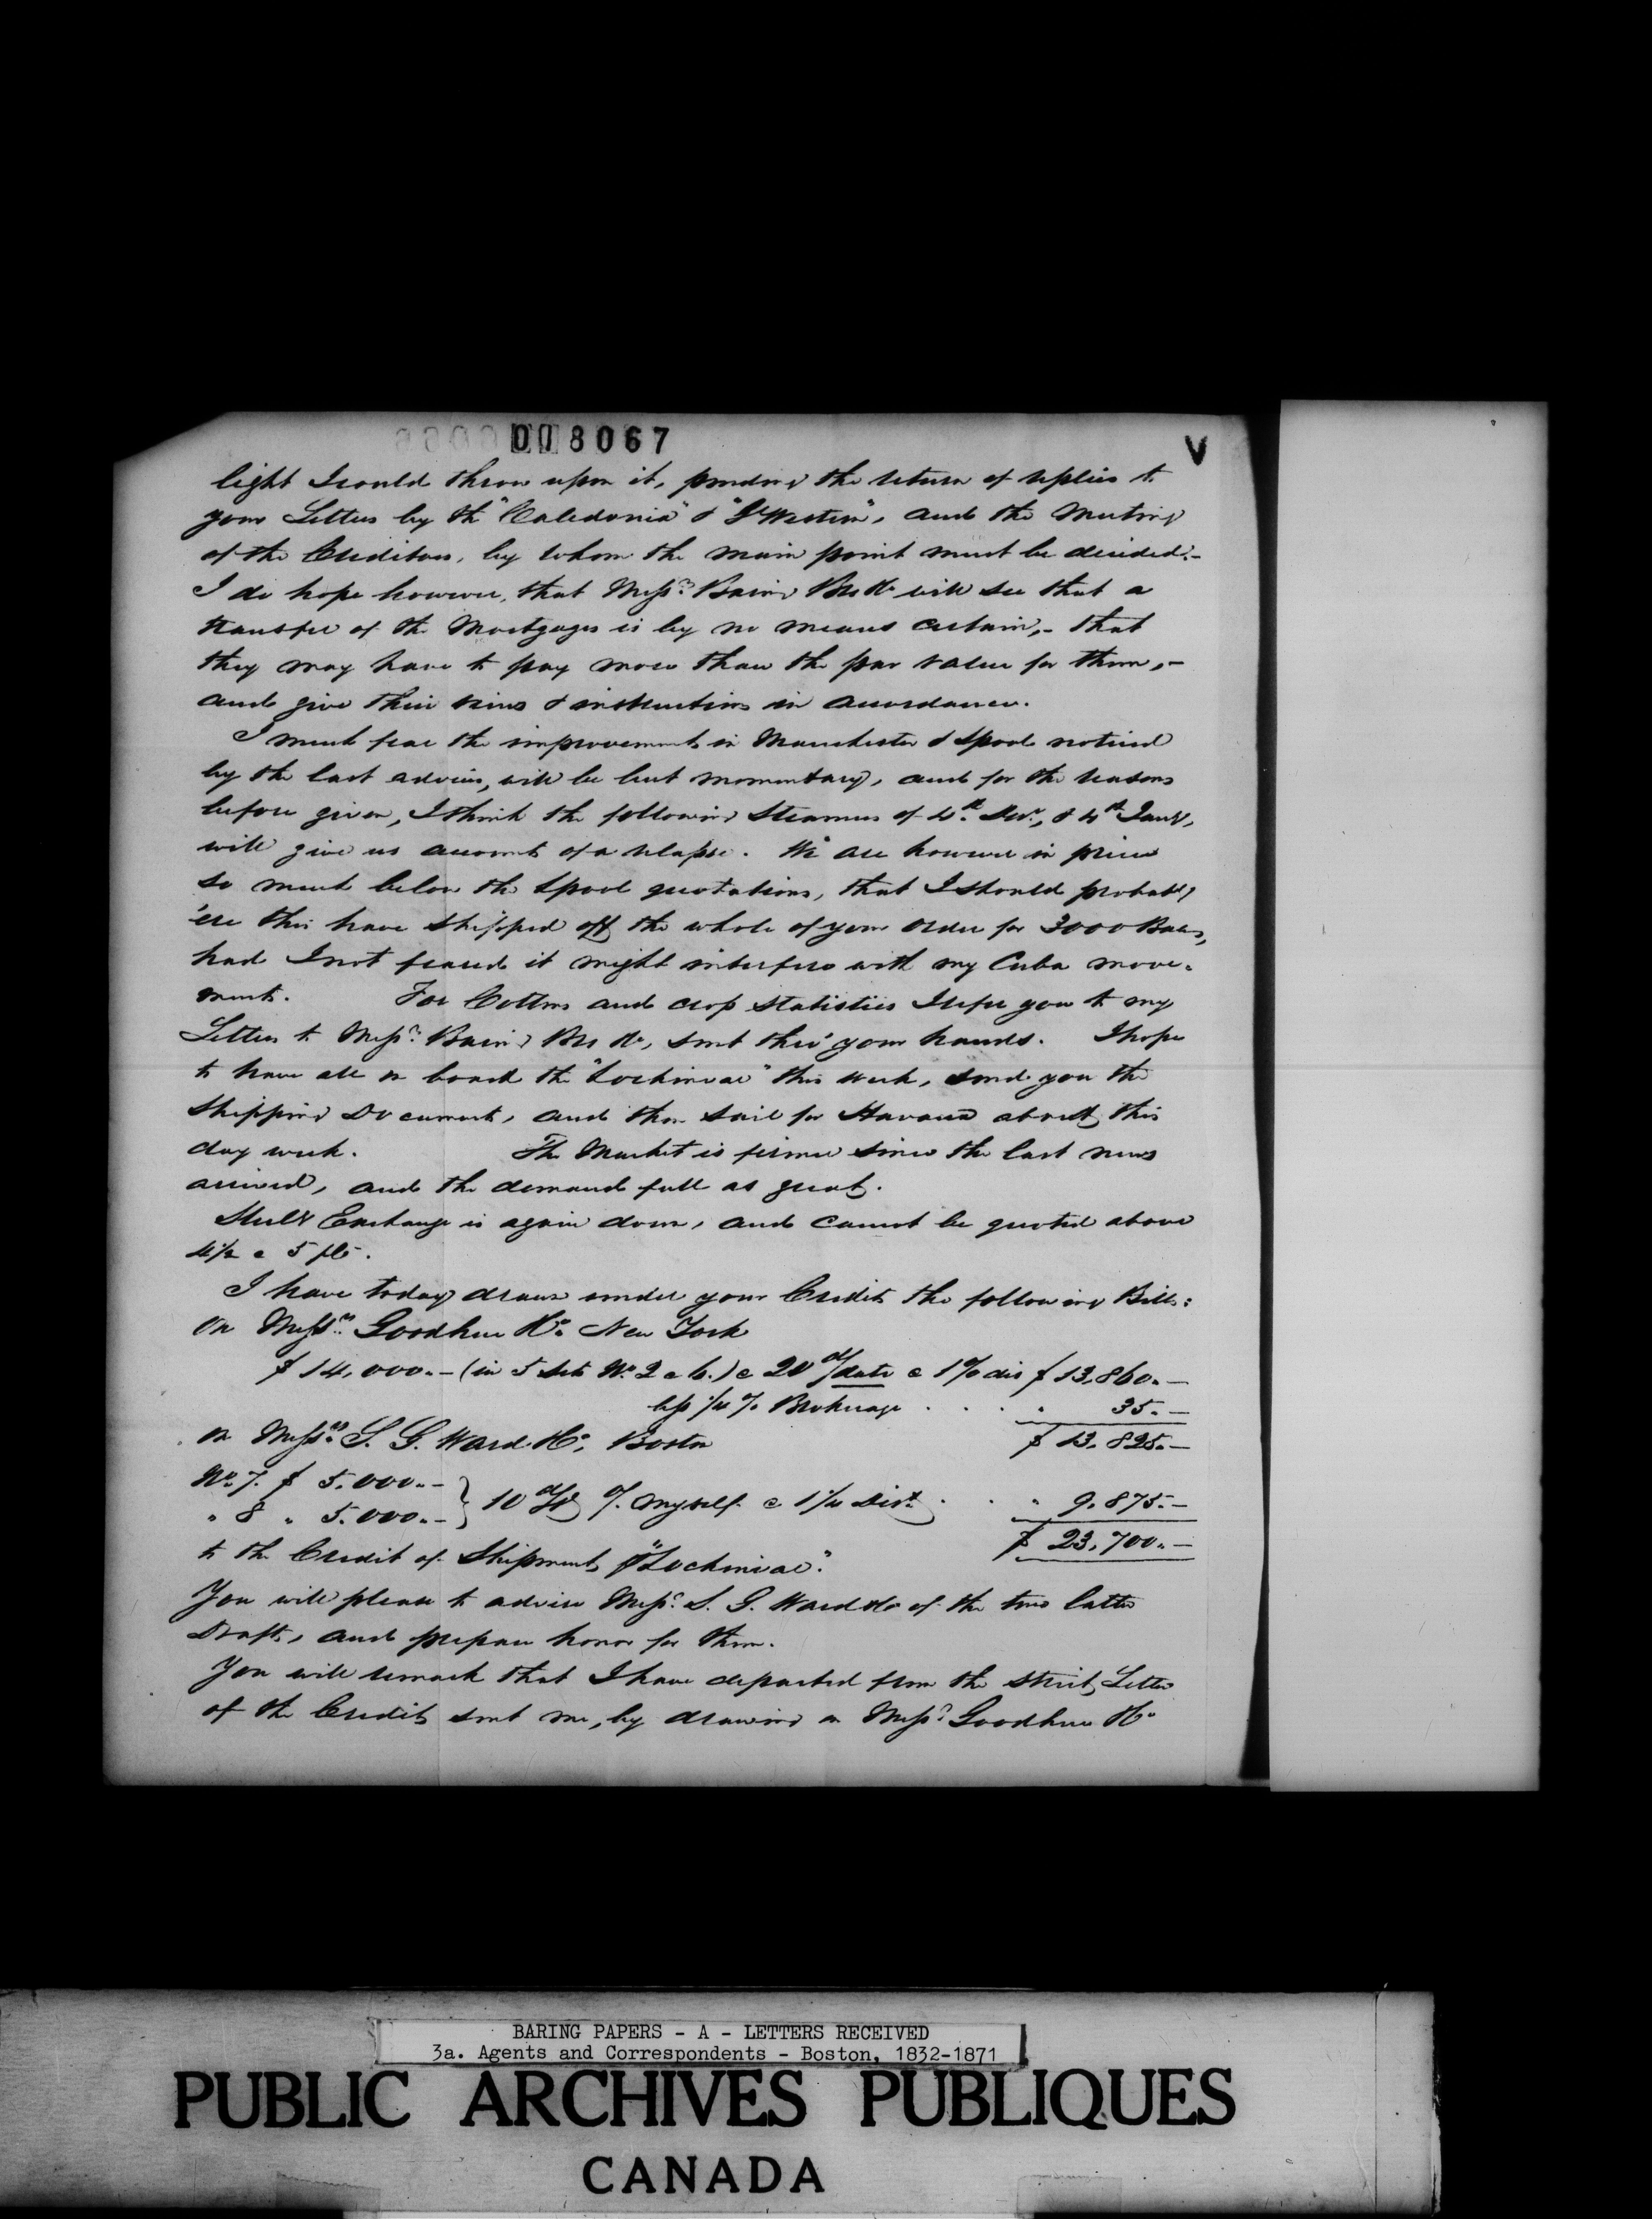 018067
V
light I could throw upon it, pending the return of replies to
your Letters by the "Caledonia" & "Gt Western", and the Meeting
of the Creditors, by whom the main point must be decided.-
I do hope however, that Messrs Baring Bros & Co will see that a
transfer of the Mortgages is by no means certain,- that
they may have to pay more than the par value for them,-
and give their views & instructions in accordance.
I much fear the improvement in Manchester & Lpool noticed
by the last advices, will be but momentary, and for the reasons
before given, I think the following Steamers of 4th Decr, & 4th Jany,
will give us accounts of a relapse. We are however in prices
so much below the Lpool quotations, that I should probably
'ere this have shipped off the whole of your order for 3000 Bales,
had I not feared it might interfere with my Cuba move-
ments. For Cotton and crop statistics I refer you to my
Letter to Messrs Baring Bros & Co, sent thro' your hands. I hope
to have all on board the "Lochinvar" this week, send you the
shipping Documents, and then sail for Havana about this
day week. The Market is firmer since the last news
arrived, and the demand full as great.
Sterlg Exchange is again down, and cannot be quoted above
4 1/2 a 5 pCt.
I have today drawn under your Credit the following Bills:
On Messrs Goodhue & Co. New York
$ 14,000.- (in 5 sets No. 2 a 6.) @ 20 d/date @ 1% dis $ 13,860.-
less 1/4 % Brokerage . . . " 35.-
$ 13,825.-
On Messrs S. G. Ward & Co, Boston
No. 7. $ 5,000.-
" 8 " 5,000.- } 10 d/st o/ myself @ 1 1/4 Dist. . . " 9,875.-
$ 23,700.-
to the Credit of Shipment p "Lochinvar".
You will please to advise Messrs S. G. Ward & Co of the two latter
Drafts, and prepare honor for them.
You will remark that I have departed from the strict Letter
of the Credit sent me, by drawing on Messrs Goodhue & Co
BARING PAPERS - A - LETTERS RECEIVED
3a. Agents and Correspondents - Boston, 1832-1871
PUBLIC ARCHIVES PUBLIQUES
CANADA